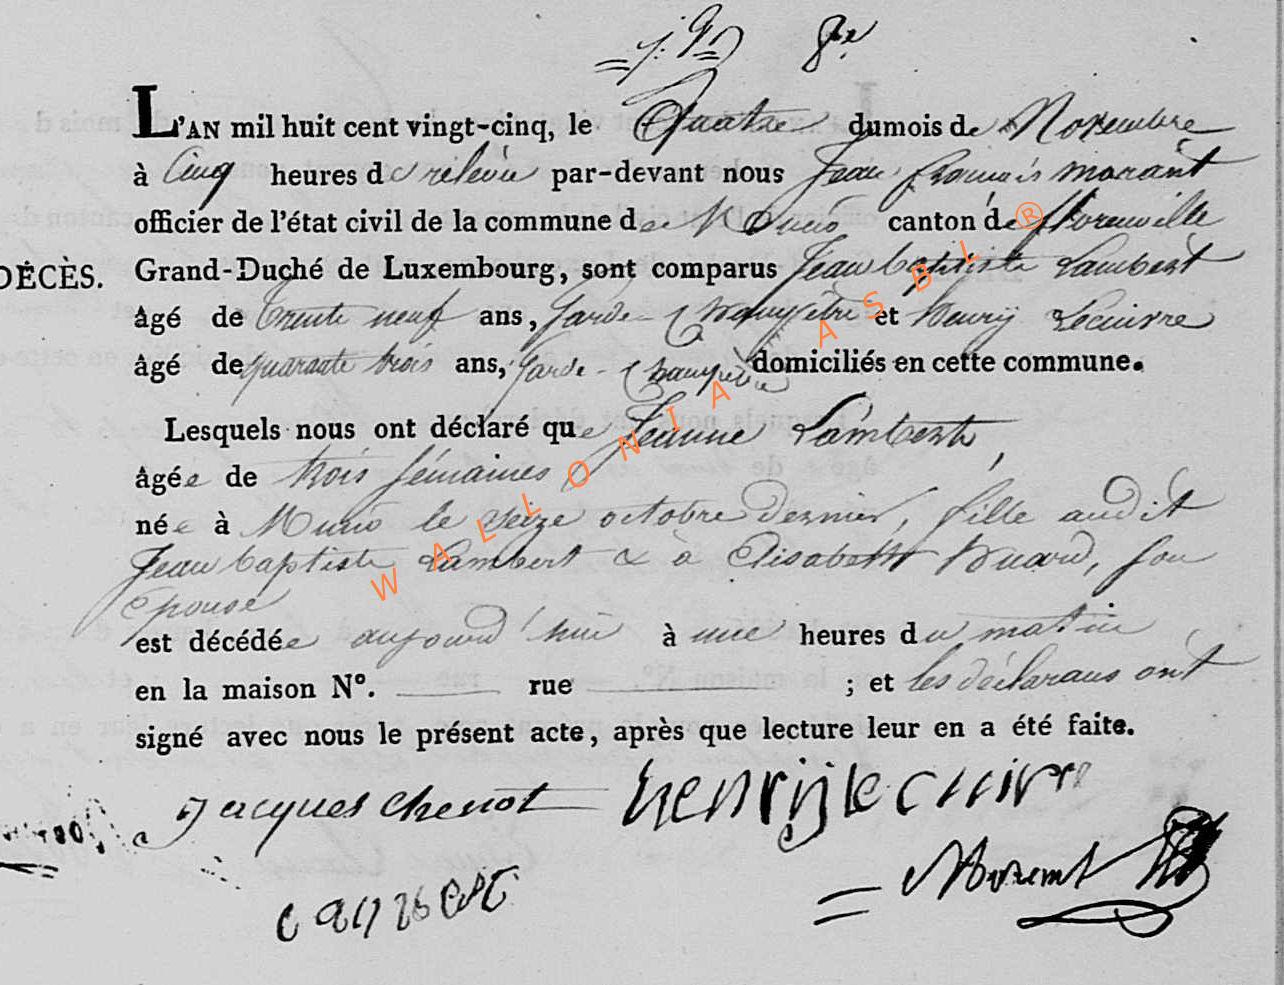 L'AN mil huit cent vingt-cinq, le Quatre du mois de Novembre
à Cinq heures de relevée par-devant nous Jean françois morant
officier de l'état civil de la commune de Muno canton de florenville
DÉCÈS. Grand-Duché de Luxembourg, sont comparus Jean baptiste Lambert
âgé de trente neuf ans, garde-champêtre et henry Lecuivre
âgé de quarante trois ans, garde-champêtre domiciliés en cette commune.
Lesquels nous ont déclaré que Jeanne Lambert,
âgée de trois semaines
née à Muno le seize octobre dernier, fille audit
Jean baptiste Lambert & à Elisabeth huard, son
épouse
est décédée aujourd'hui à une heures du matin
en la maison N°. rue ; et les déclarans ont
signé avec nous le présent acte, après que lecture leur en a été faite.
jacques chenot henrij lecuivre
Morant
WALLONIA ASBL ®